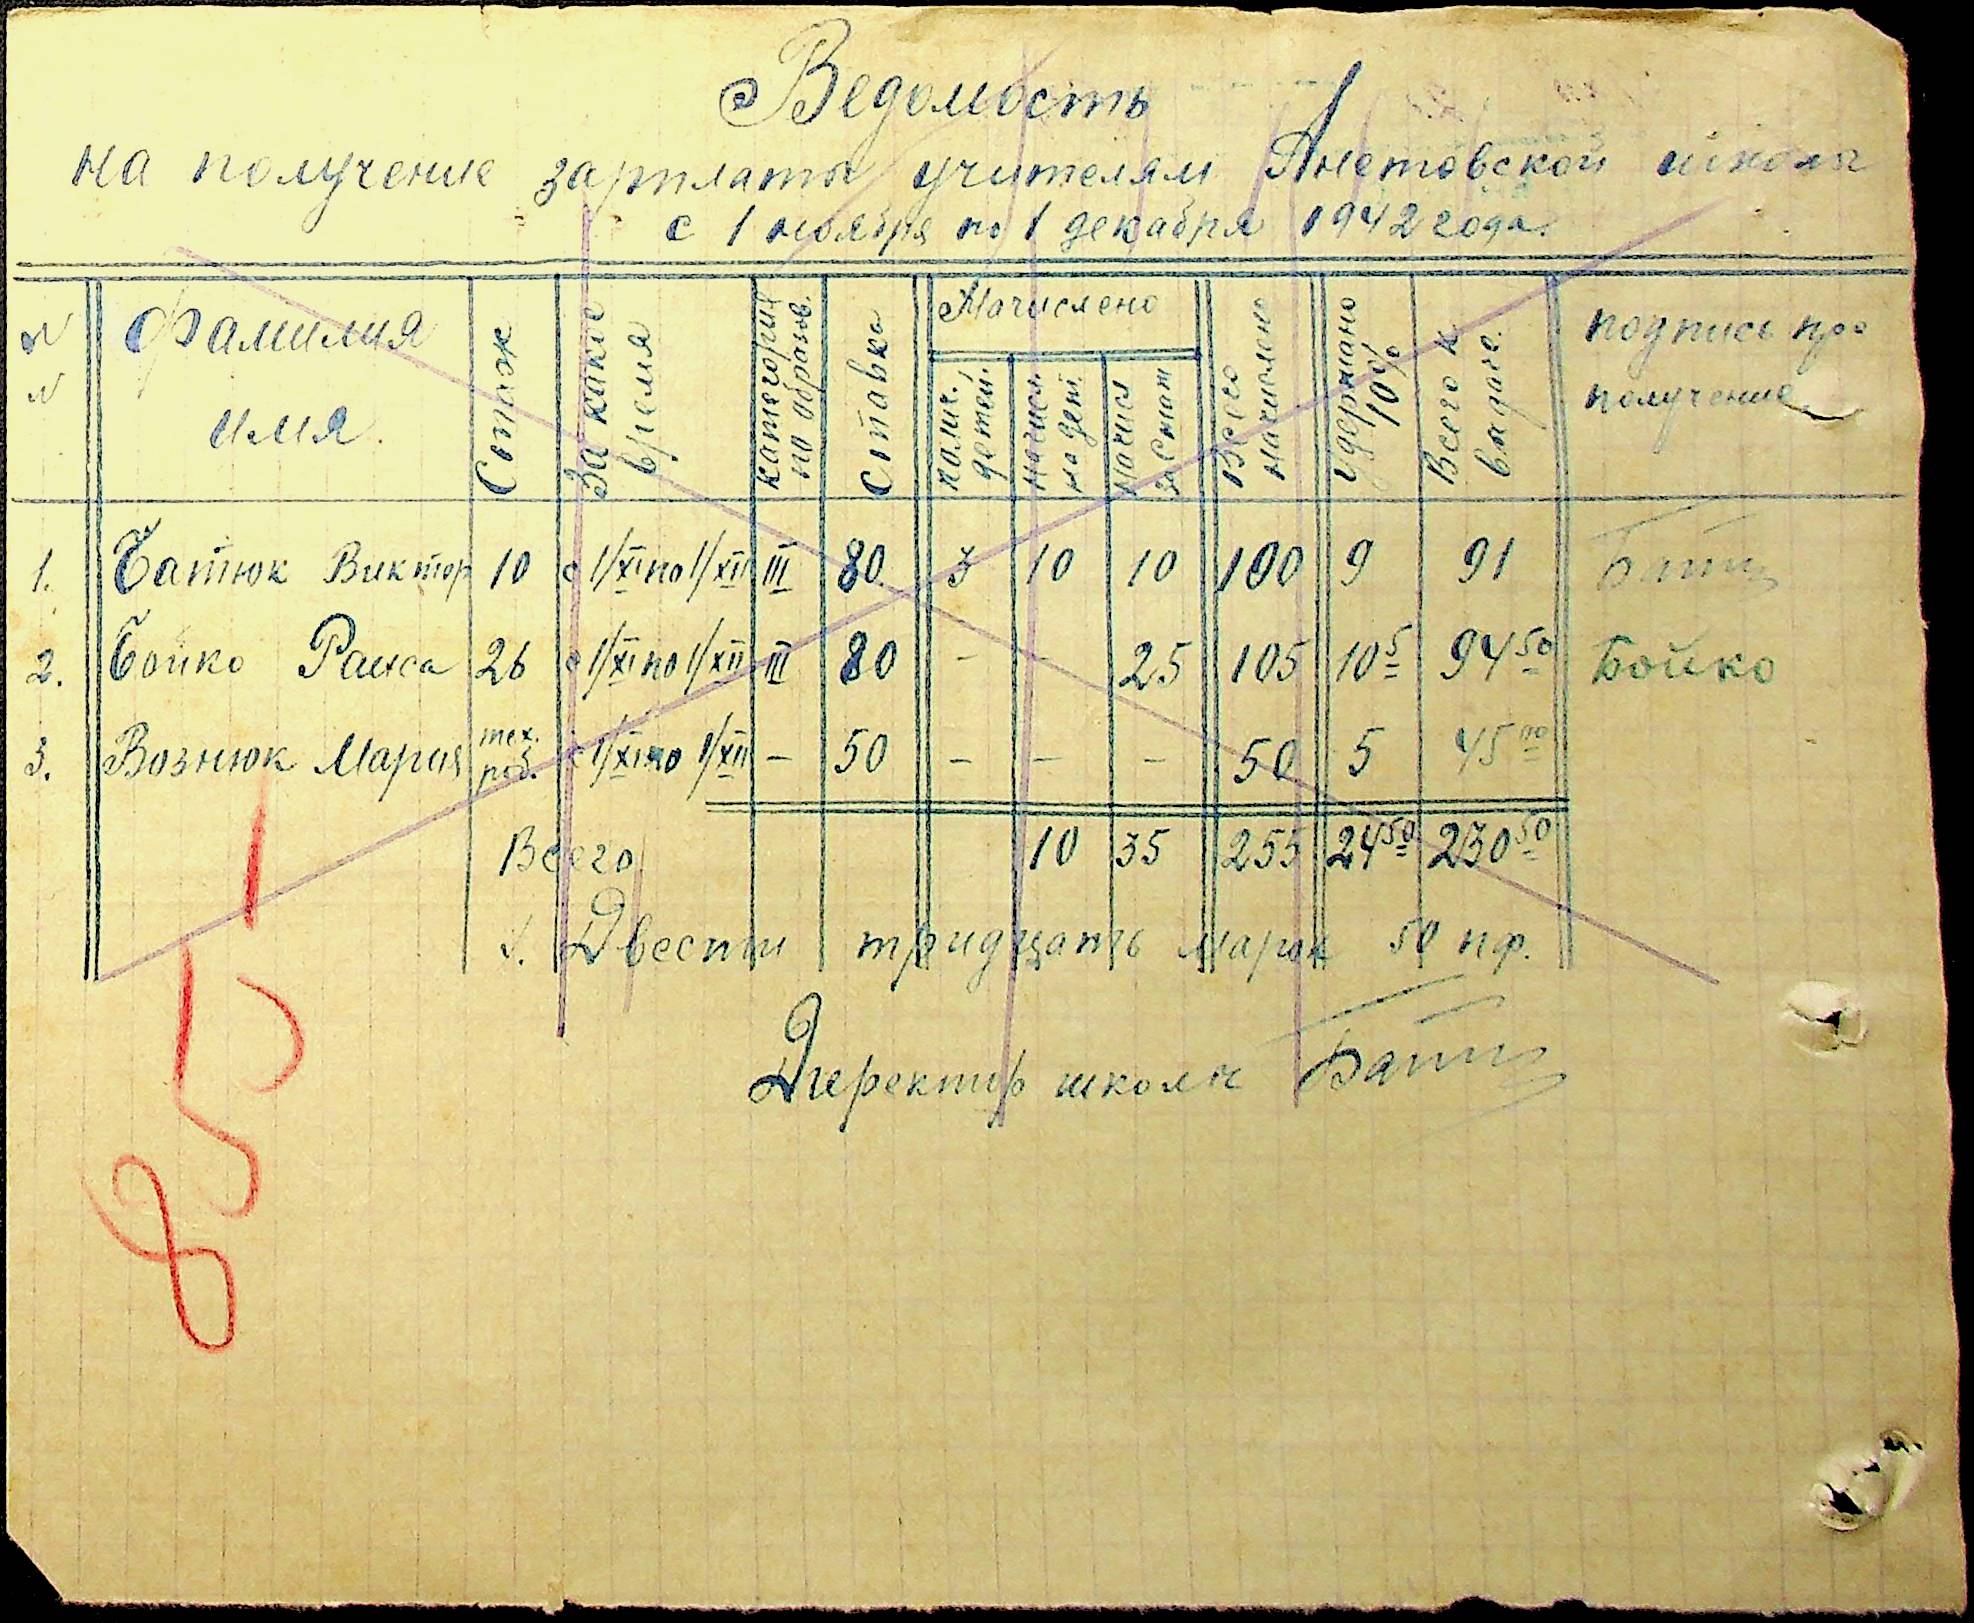 Ведомость
на получение зарплаты учителям Анетовской школы
с 1 ноября по 1 декабря 1942 года.
N N Фамилия имя. Стаж За какое время категория по образов. Ставка Начислено колич. детей. начисл. на дет. начисл за стаж Всего начислено Удержано 10% Всего к выдаче. подпись про получение
1. Батюк Виктор 10 с 1/XI по 1/XII III 80 3 10 10 100 9 91 Батю
2. Бойко Раиса 26 с 1/XI по 1/XII III 80 - - 25 105 10 5 94 50 Бойко
3. Вознюк Мария тех. роб. с 1/XI по 1/XII - 50 - - - 50 5 45 00
Всего 10 35 255 24 50 230 50
Двести тридцать марок 50 пф.
Директор школы Батю
85